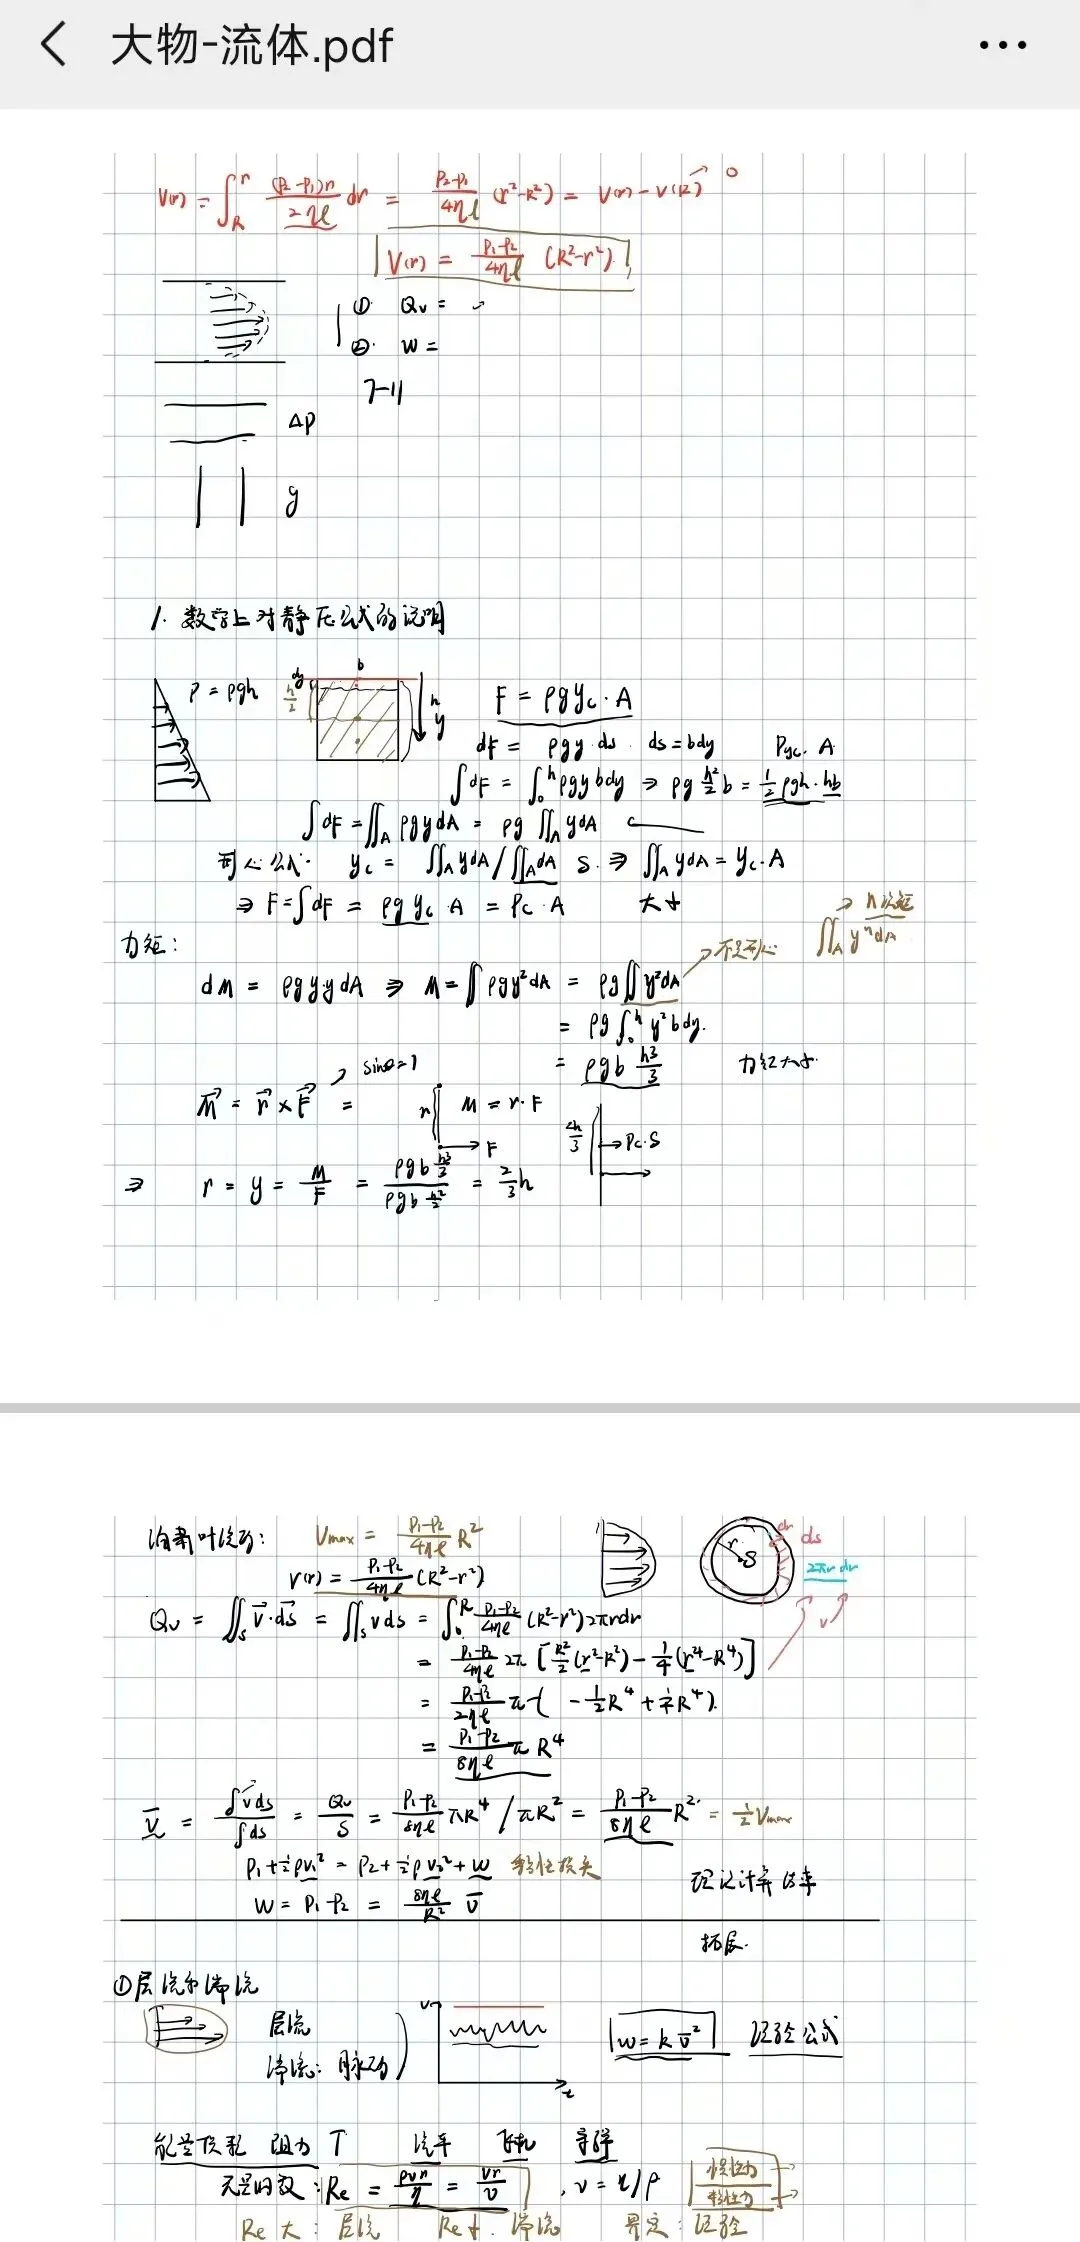 大物-流体.pdf
V(r) = ∫_R^r (P₂-P₁)r/2ηl dr = P₂-P₁/4ηl (r²-R²) = V(r) - V(R) → 0
V(r) = P₁-P₂/4ηl (R²-r²)
① Qv =
② W =
7-11
ΔP
g
1. 数学上对静压公式的说明
P = ρgh
dy b h/2 h y
F = ρg y_c · A
dF = ρgy · ds ds = bdy P_yc · A
∫dF = ∫₀^h ρgy bdy ⇒ ρg h²/2 b = 1/2 ρgh · hb
∫dF = ∬_A ρgydA = ρg ∬_A ydA
形心公式: y_c = ∬_A ydA / ∬_A dA S ⇒ ∬_A ydA = y_c · A
⇒ F = ∫dF = ρg y_c · A = P_c · A 大小
→ n次矩
∬_A yⁿdA
力矩: → 不是形心
dM = ρgy·ydA ⇒ M = ∬ρgy²dA = ρg∬y²dA
= ρg∫₀^h y²bdy.
= ρgb h³/3 力矩大小
→ sinθ=1
M = r × F = r M = r·F
F 2h/3 → Pc·S
⇒ r = y = M/F = ρgb h³/3 / ρgb h²/2 = 2/3 h
泊肃叶流动: Vmax = P₁-P₂/4ηl R²
dr ds r S 2πr dr
V(r) = P₁-P₂/4ηl (R²-r²)
Qv = ∬_s v·ds = ∬_s vds = ∫₀^R P₁-P₂/4ηl (R²-r²)2πrdr v
= P₁-P₂/4ηl 2π [R²/2 (r²-R²) - 1/4 (r⁴-R⁴)]
= P₁-P₂/2ηl π (-1/2 R⁴ + 1/4 R⁴).
= P₁-P₂/8ηl π R⁴
v̄ = ∫vds/∫ds = Qv/S = P₁-P₂/8ηl πR⁴ / πR² = P₁-P₂/8ηl R² = 1/2 Vmax
P₁+1/2ρv₁² = P₂+1/2ρv₂²+w 粘性损失
W = P₁-P₂ = 8ηl/R² v̄ 理论计算
拓展.
①层流和湍流
层流 v
湍流: 脉动 t
w = k v̄² 经验公式
能量损耗 阻力 ↑ 汽车 飞机 导弹
无量纲数: Re = ρvr/η = vr/ν , ν = η/ρ 惯性力/粘性力
Re 大: 层流 Re小: 湍流 界定: 经验